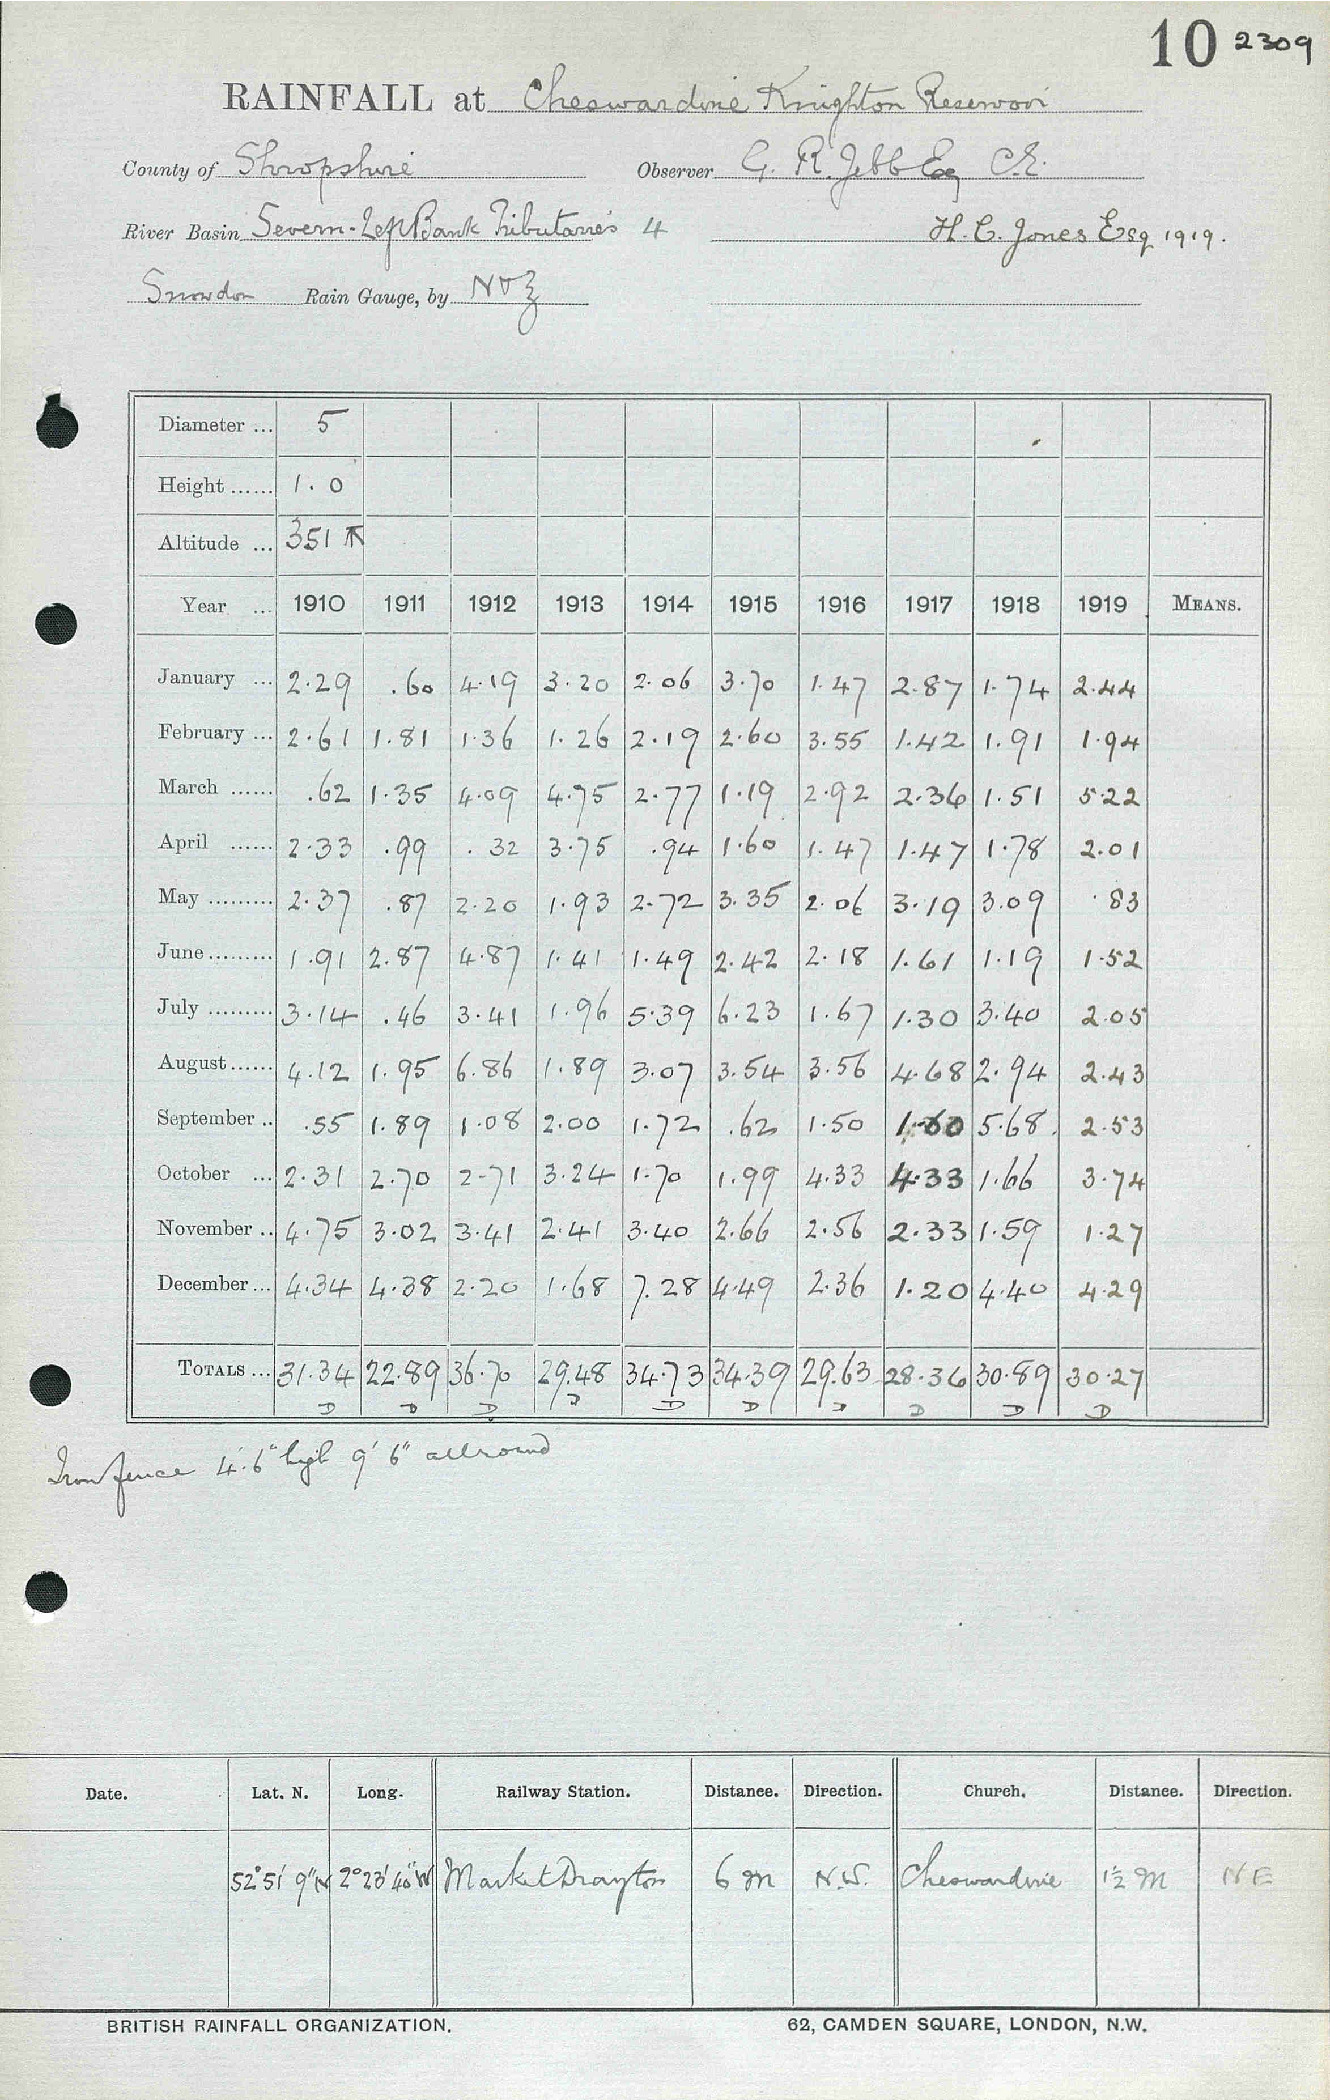 10 2309
RAINFALL at Cheswardine Knighton Reservoir
County of Shropshire Observer G. R. Jebb Esq C.E.
River Basin Severn-Left Bank Tributaries 4 H. C. Jones Esq 1919.
Snowdon Rain Gauge, by N & Z
Diameter ... 5
Height ...... 1.0
Altitude ... 351
Year ... 1910 1911 1912 1913 1914 1915 1916 1917 1918 1919 MEANS.
January ... 2.29 .60 4.19 3.20 2.06 3.70 1.47 2.87 1.74 2.44
February ... 2.61 1.81 1.36 1.26 2.19 2.60 3.55 1.42 1.91 1.94
March ...... .62 1.35 4.09 4.75 2.77 1.19 2.92 2.36 1.51 5.22
April ...... 2.33 .99 .32 3.75 .94 1.60 1.47 1.47 1.78 2.01
May ......... 2.37 .87 2.20 1.93 2.72 3.35 2.06 3.19 3.09 .83
June ......... 1.91 2.87 4.87 1.41 1.49 2.42 2.18 1.61 1.19 1.52
July ......... 3.14 .46 3.41 1.96 5.39 6.23 1.67 1.30 3.40 2.05
August ...... 4.12 1.95 6.86 1.89 3.07 3.54 3.56 4.68 2.94 2.43
September .. .55 1.89 1.08 2.00 1.72 .62 1.50 1.60 5.68 2.53
October ... 2.31 2.70 2.71 3.24 1.70 1.99 4.33 4.33 1.66 3.74
November .. 4.75 3.02 3.41 2.41 3.40 2.66 2.56 2.33 1.59 1.27
December ... 4.34 4.38 2.20 1.68 7.28 4.49 2.36 1.20 4.40 4.29
TOTALS ... 31.34 22.89 36.70 29.48 34.73 34.39 29.63 28.36 30.89 30.27
D D D D D D D D D D
Iron fence 4'.6" high 9' 6" all round
Date. Lat. N. Long. Railway Station. Distance. Direction. Church. Distance. Direction.
52°51' 9"N 2°23'40"W Market Drayton 6 m N.W. Cheswardine 1½ M NE
BRITISH RAINFALL ORGANIZATION. 62, CAMDEN SQUARE, LONDON, N.W.